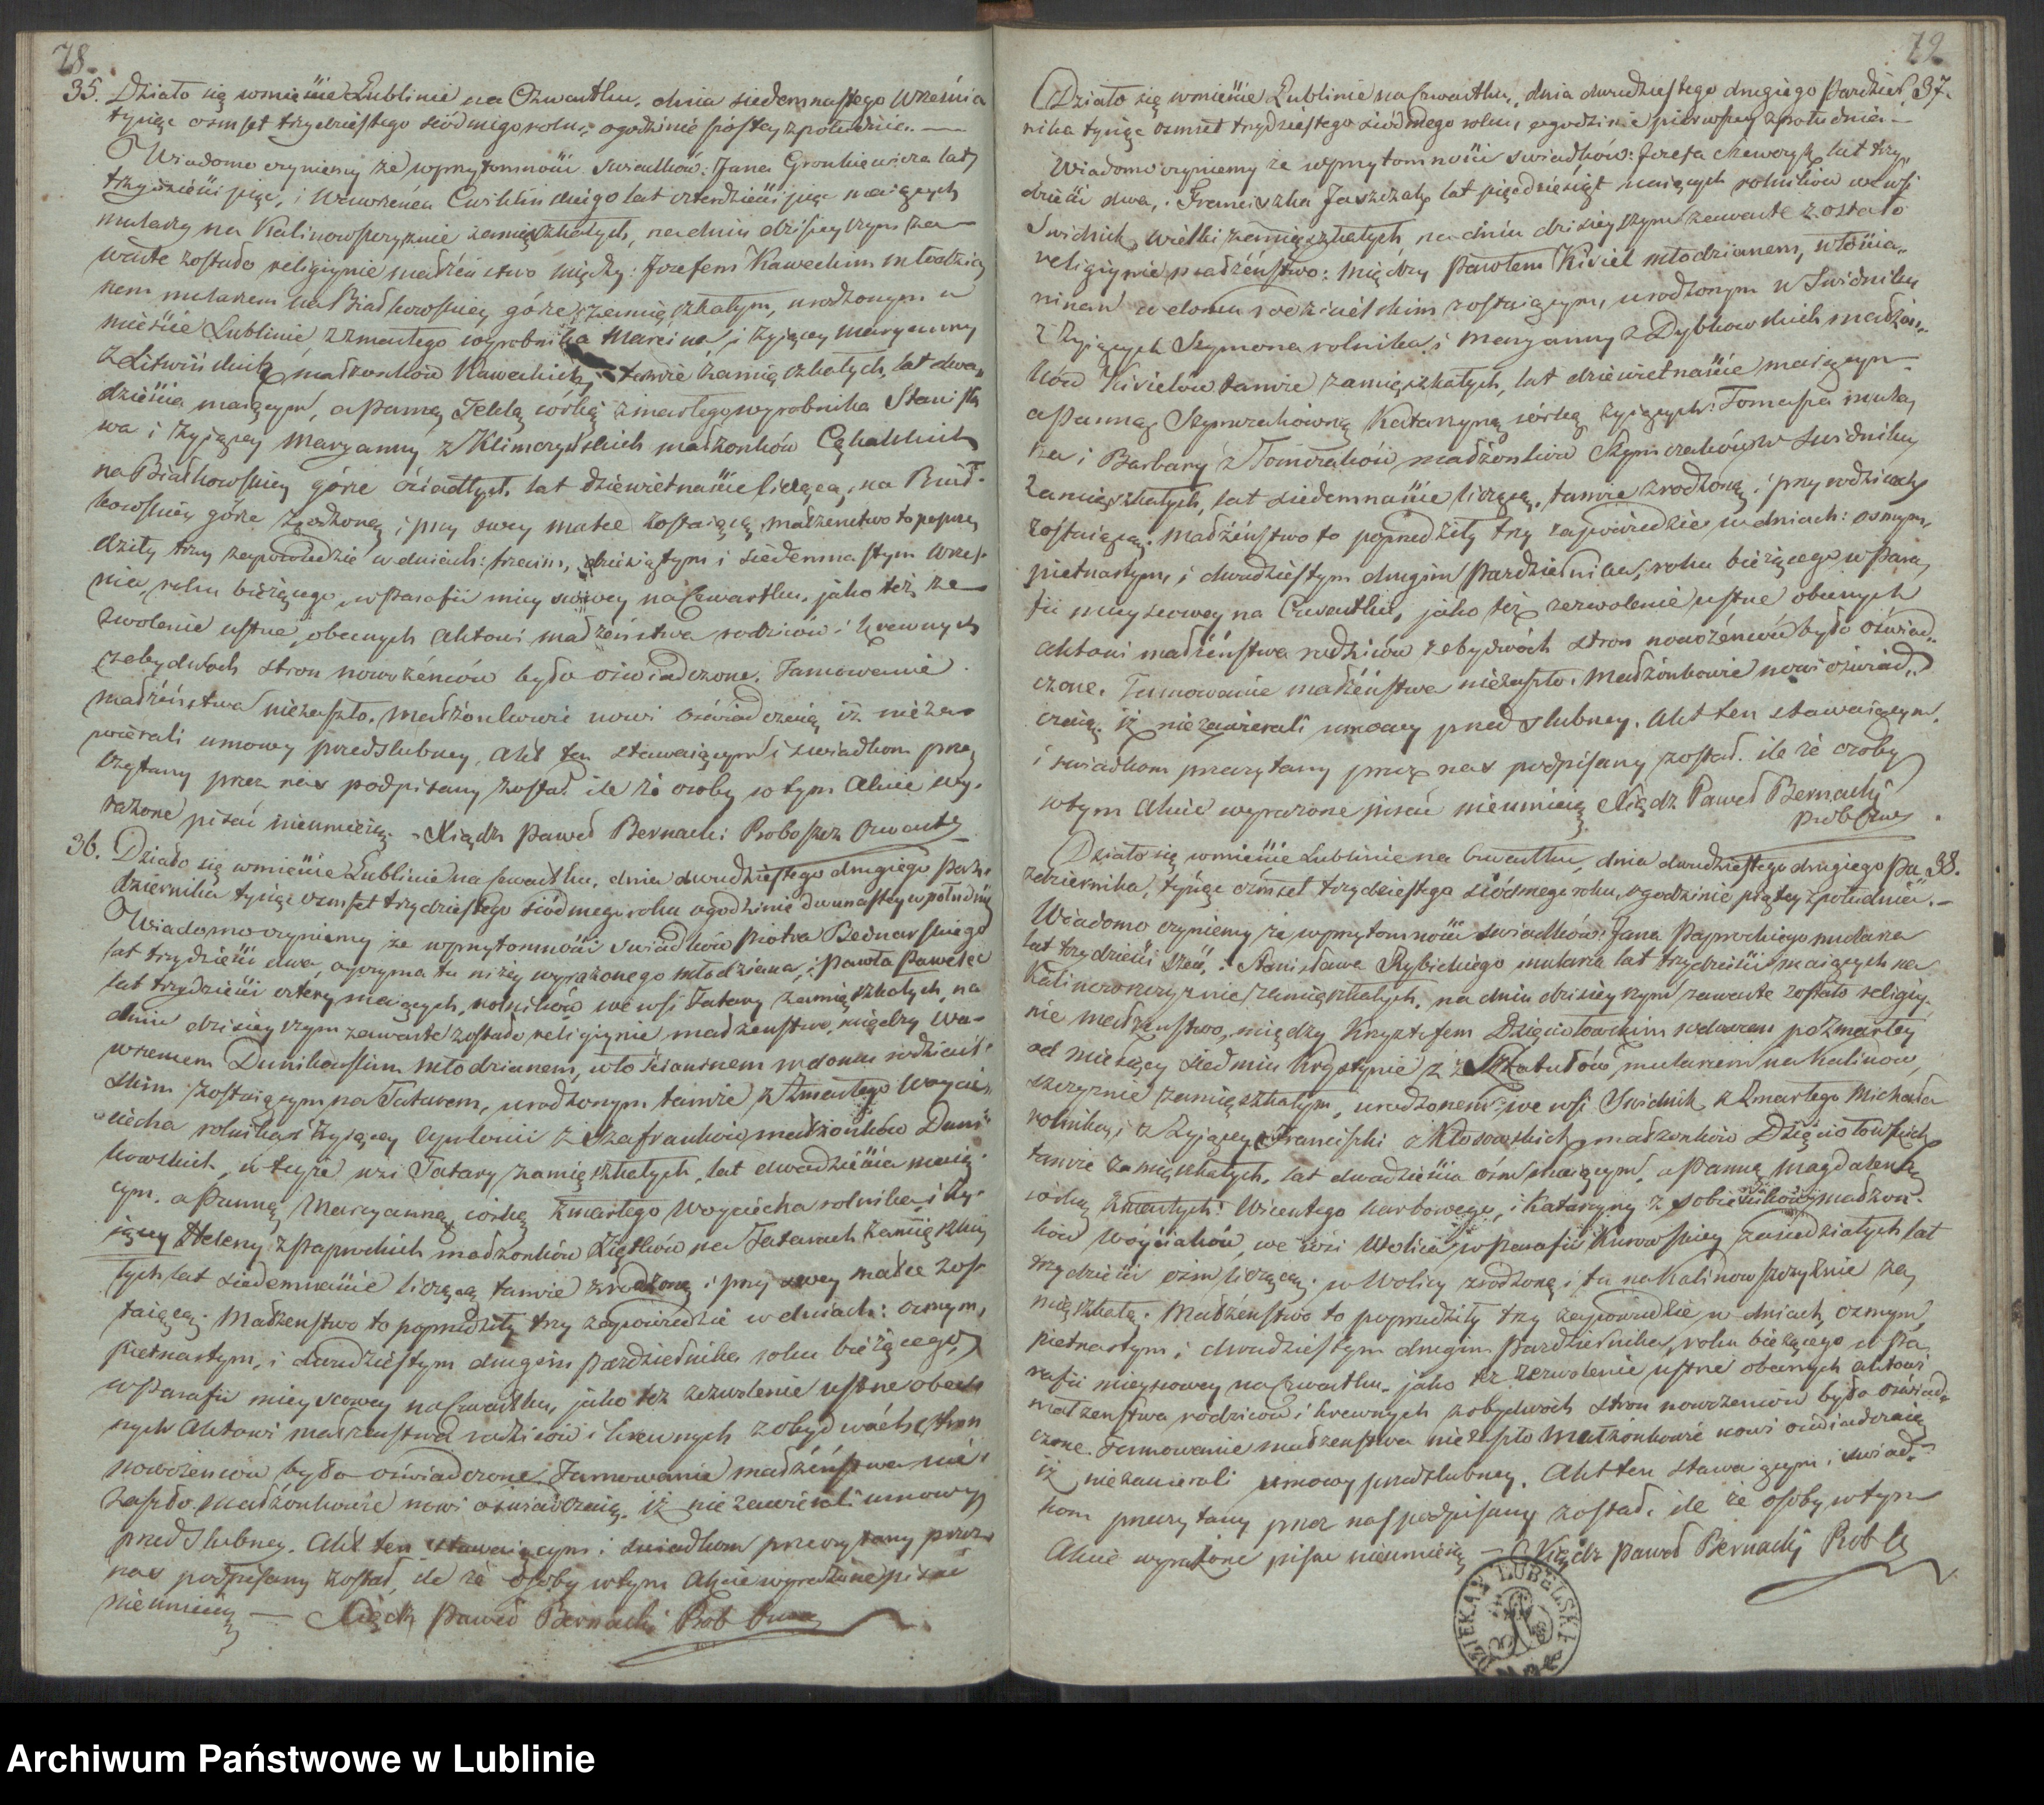 78.
35. Działo się wmieście Lublinie na Czwartku, dnia siedemnastego Września
tysiąc ośmset trzydziestego siódmego roku, ogodzinie szóstey zpołudnia. —
Wiadomo czyniemy że wprzytomności Swiadków: Jana Gronkiewicza lat
trzydzieści pięć, i Wawrzeńca Cwiklińskiego lat czterdzieści pięć maiących
mularzy na Kalinowszczyznie zamięszkałych, nadniu dzisieyszym za-
warte zostało religiynie małżeństwo między: Jozefem Kaweckim młodzia
nem mularzem na Białkowskiey górze zamięszkałym, urodzonym w
mieście Lublinie z zmarłego wyrobnika Marcina, i żyjącey Maryanny
z Litwińskich małżonków Kaweckich, tamże zamięszkałych, lat dwa„
dzieścia maiącym, a Panną Teklą córką zmarłego wyrobnika Stanisła
wa i żyjącey Maryanny z Klimczyńskich małżonków
na Białkowskiey górze osiadłych, lat dziewietnaście licząca, na Biał-
kowskiey górze zrodzoną i przy swey matce zostaiącą, małżenstwo to poprze
dziły trzy zapowiedzie wdniach: trzecim, dziesiątym i siedemnastym Wrze-
nia, roku bieżącego, wParafii mieyscowey na Czwartku, jako też ze-
zwolenie ustne, obecnych Aktowi małżeństwa rodziców i krewnych
zobydwóch stron nowożeńców było oświadczone. Tamowanie
małżeństwa niezaszło. Małżonkowie nowi oświadczaią iż nieza-
wierali umowy przedslubney, Akt ten stawaiącym i swiadkom prze
czytany przez nas podpisany został. ile że osoby wtym Akcie wy-
rażone pisać nieumieią. - Xiądz Paweł Bernacki Proboszcz Czwartku
36. Działo się wmieście Lublinie na Czwartku, dnia dwudziestego drugiego Paź-
dziernika tysiąc osmset trzydziestego siódmego roku ogodzinie dwunastey wpołudnie
Wiadomo czyniemy że wprzytomności swiadków Piotra Bednarskiego
lat trzydzieści dwa, oyczyma tu niżey wyrażonego młodziana, i Pawła Pawelec
lat trzydzieści cztery maiących, rolników we wsi Tatary zamięszkałych, na
dniu dzisieyszym zawarte zostało religiynie małżenstwo, między Wa-
wrzencem Dunikowskim młodzianem, włościaninem wdomu rodziciel-
skim zostaiącym na Tatarem, urodzonym tamże z Zmarłego Woycie„
ciecha rolnika i żyjącey z Szafranków, małżonków Duni-
kowskich, w teyże wsi Tatary zamięszkałych, lat dwadzieścia maią-
cym. a Panną Maryanną córką Zmarłego Woyciecha rolnika, i ży-
iącey Heleny z Paprockich małżonków Ziętków na Tatarach zamięszka
łych, lat siedemnaście liczącą tamże zrodzoną i przy swey matce zos-
taiącą. Małżenstwo to poprzedziły trzy zapowiedzie w dniach: osmym,
pietnastym, i dwudziestym drugim Pazdziernika roku bieżącego,
wParafii mieyscowey na Czwartku, jako też zezwolenie ustne obec-
nych Aktowi małżenstwa rodziców i krewnych z obydwóch stron
nowożencow było oświadczone. Tamowanie małżeństwa nie-
zaszło. Małżonkowie nowi oświadczaią. iż nie zawierali umowy
przedslubney. Akt ten stawaiącym i swiadkom przeczytany przez
nas podpisany został, ile że osoby wtym Akcie wyrażone pisać
nieumieią — Xiądz Paweł Bernacki Prob
79.
Działo się wmieście Lublinie na Czwartku, dnia dwudziestego drugiego Pazdzier 37.
nika tysiąc osmset trzydziestego siódmego roku, o godzinie pierwszey zpołudnia. —
Wiadomo czyniemy że wprzytomności swiadków: Jozefa Szewczyk, lat trzy„
dzieści dwa, i Franciszka Jaszczak, lat pięcdziesiąt maiących rolników wewsi
Swidnik Wielki zamięszkałych, na dniu dzisieyszym zawarte zostało
religiynie małżeństwo: między Pawłem Kiviel młodzianem, włościa„
ninem w domu rodzicielskim zostaiącym, urodzonym w Swidniku
z żyjących Szymona rolnika i Maryanny z Dybkowskich małżon„
ków Kivielów tamże zamięszkałych, lat dziewietnaście maiącym
a Panną Szymczakówną Katarzyną córką żyjących: Tomasza mula
rza i Barbary z Tomczaków małżonków Szymczaków w Swidniku
zamięszkałych, lat siedemnaście liczącą, tamże zrodzoną, i przy rodzicach
zostaiącą. Małżeństwo to poprzedziły trzy zapowiedzie wdniach: osmym,
pietnastym, i dwudziestym drugim Pazdziernika, roku bieżącego wPara
fii mieyscowey na Czwartku, jako też zezwolenie ustne obecnych
Aktowi małżeństwa rodziców zobydwóch stron nowożeńców było oświad„
czone. Tamowanie małżeństwa niezaszło. Małżonkowie nowi oświad„
czaią. iż niezawierali umowy przedslubney. Akt ten stawaiącym,
i swiadkom przeczytany przez nas podpisany został. ile że osoby
wtym Akcie wyrażone pisać nieumieią Xiądz Paweł Bernacki
Prob
Działo się wmieście Lublinie na Czwartku, dnia dwudziestego drugiego Pa 38.
zdziernika, tysiąc ośmset trzydziestego siódmego roku, ogodzinie piątey zpołudnia. —
Wiadomo czyniemy że wprzytomności swiadków: Jana Paprockiego mularza
lat trzydzieści sześć, i Stanisława Rybickiego mularza lat trzydzieści maiących na
Kalinowszczyznie zamięszkałych, na dniu dzisieyszym zawarte zostało religiy-
nie małżenstwo, między Krysztofem Dzięciołowskim wdowcem pozmarłey
od miesięcy siedmiu Krystynie z mularzem na Kalinow„
szczyznie zamięszkałym, urodzonem we wsi Swidnik z Zmarłego Michała
rolnika, i z żyjącey Franciszki z Kłosowskich małżonków Dzięciołowskich
tamże zamięszkałych, lat dwadzieścia ośm maiącym, a Panną Magdaleną
córką zmarłych: Wicentego karbowego, i Katarzyny z małżon-
ków Wóyciaków, we wsi Wolica wParafii Kurowskiey zasiedziałych lat
trzydzieści ośm liczącą, w Wolicy zrodzoną i tu na Kalinowszczyznie za
mięszkałą. Małżeństwo to poprzedziły trzy zapowiedzie w dniach, osmym,
pietnastym i dwudziestym drugim Pazdziernika, roku bieżącego w Pa
rafii mieyscowey na Czwartku, jako też zezwolenie ustne obecnych aktowi
małżenstwa rodziców i krewnych zobydwóch stron nowożencow było oświad„
czone. Tamowanie małżenstwa niezaszło Małżonkowie nowi oświadczaią
iż niezawierali umowy przedslubney. Akt ten stawaiącym i swiad„
kom przeczytany przez nas podpisany został. ile że osoby wtym
Akcie wyrażone pisać nieumieią — Xiądz Paweł Bernacki Prob
DZIEKAN LUBELSKI
Archiwum Państwowe w Lublinie